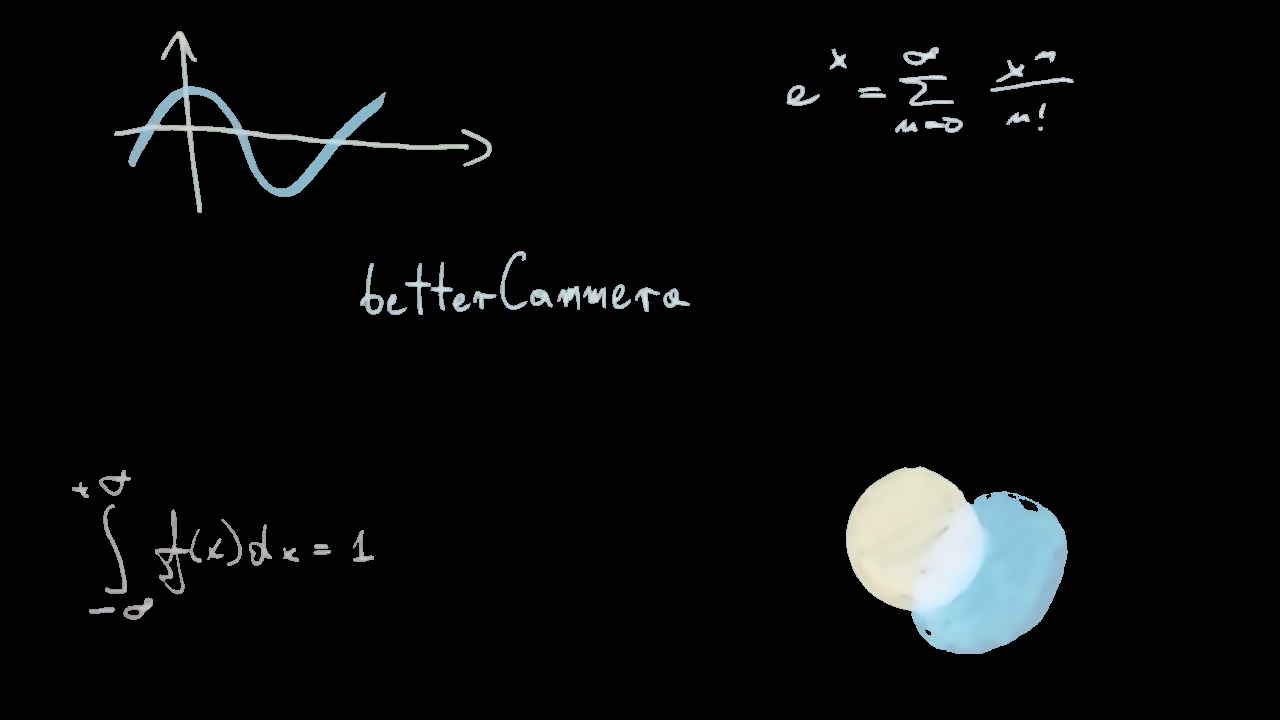 e^x = ∑_{n=0}^{∞} x^n / n!
betterCammera
∫_{-∞}^{+∞} f(x)dx = 1